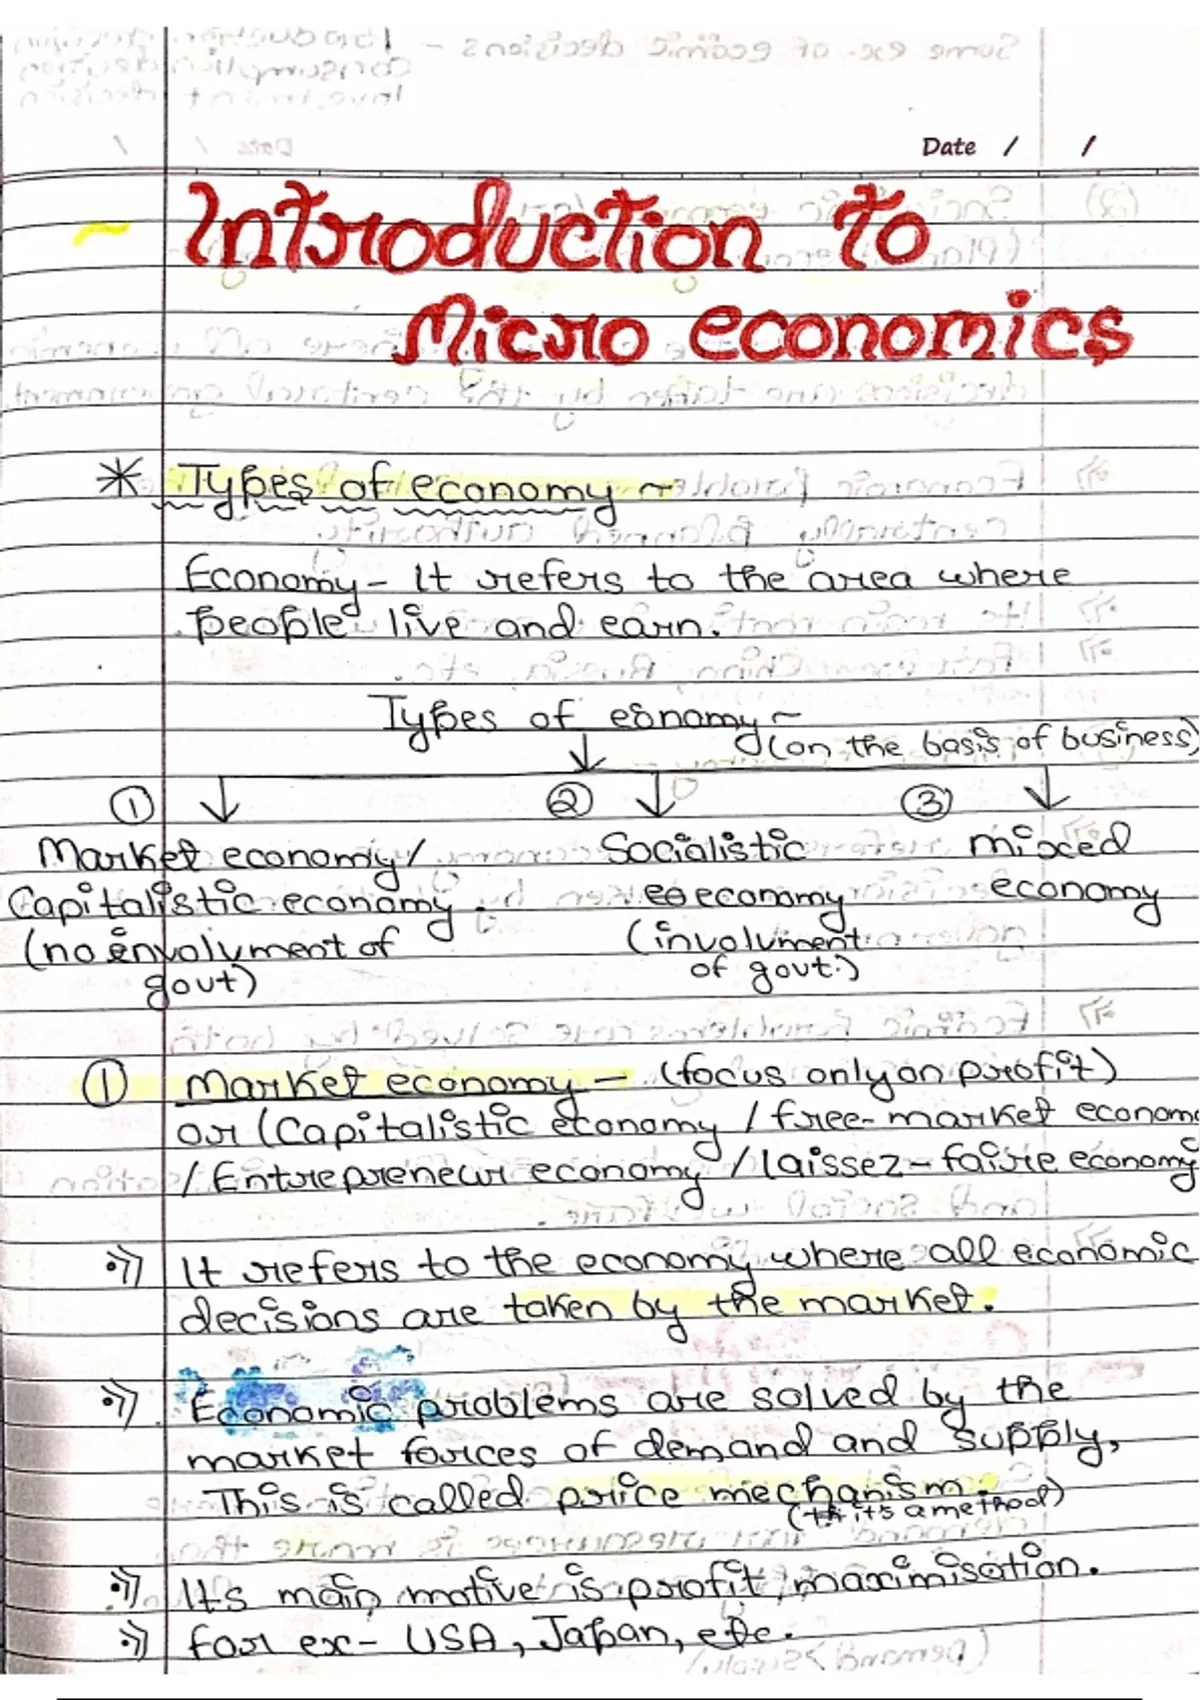 Date / /
Introduction to
Micro economics
* Types of economy ~
Economy - It refers to the area where
people live and earn.
Types of eonomy ~
(on the basis of business)
① ② ③
Market economy/ Socialistic mixed
Capitalistic economy. economy economy
(no envolvment of (involvment
govt) of govt.)
① Market economy - (focus only on profit)
or (Capitalistic economy / free-market econom
/ Entrepreneur economy / laissez-faire economy
It refers to the economy where all economic
decisions are taken by the market.
Economic problems are solved by the
market forces of demand and supply,
This is called price mechanism.
(it's a method)
Its main motive is profit maximisation.
for ex- USA, Japan, etc.